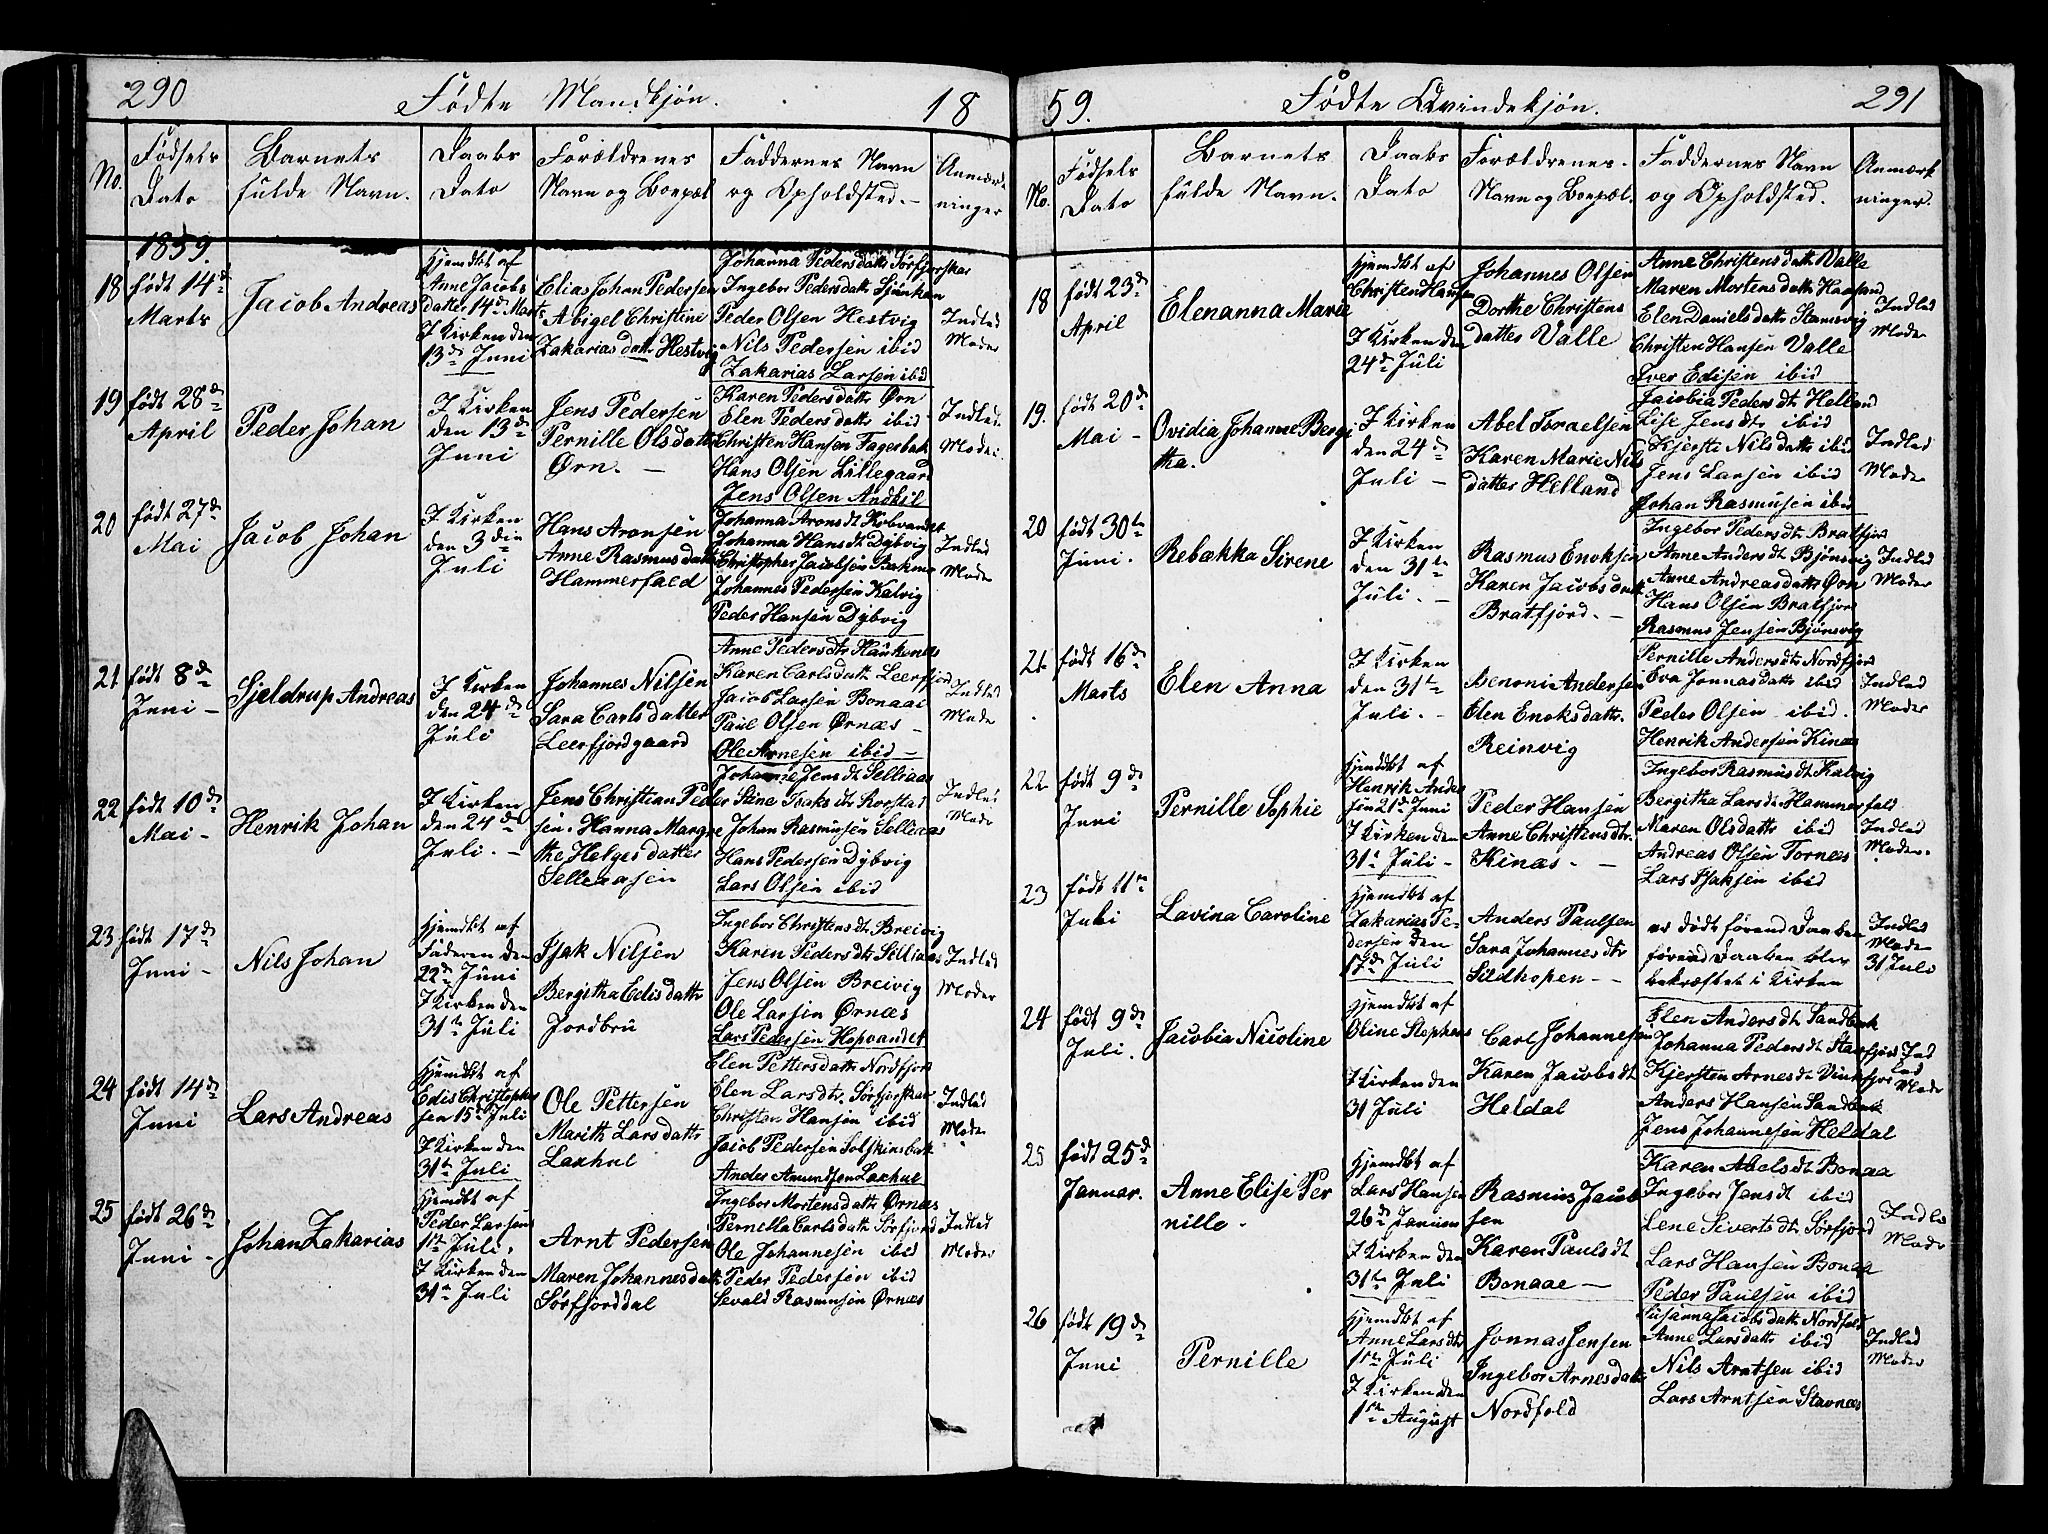 290
Fødte Mandkjøn.
18
No.
Fødsels
Dato
Barnets
fulde Navn.
Daabs
Dato
Forældrenes
Navn og Boepæl
Faddernes Navn
og Opholdsted.
Anmærk
ninger
1859.
18
født 14de
Marts
Jacob Andreas
Hjemdbt af
Anne Jacobs
Datter 14de Marts
I Kirken den
13de Juni
Elias Johan Pedersen
Abigel Christine
Zakarias datt Hestvig
Johanna Pedersdatt Sørfjorskar
Ingebor Pedersdatt
Peder Olsen Hestvig
Nils Pedersen ibid
Zakarias Larsen ibid
Indled
Moder
19
født 28de
April
Peder Johan
I Kirken
den 13de
Juni
Jens Pedersen
Pernille Olsdatter
Ørn.
Karen Pedersdatt Ørn
Elen Pedersdatt ibid
Christen Hansen Fagerbak
Hans Olsen Lillegaard
Jens Olsen Andkil
Indled.
Moder
20
født 27de
Mai
Jacob Johan
I Kirken
den 3die
Juli
Hans Aronsen
Anne Rasmusdatt
Hammerfald
Johanna Aronsdt Kobvandet
Johanna Hansdt Dybvig
Christopher Jacobsen Bakme
Johannes Pedersen Kalvig
Peder Hansen Dybvig
Indled
Mode
21
født 8de
Juni
Sjeldrup Andreas
I Kirken
den 24de
Juli
Johannes Nilsen
Sara Carlsdatter
Leerfjordgaard
Anne Pedersdtr Haukenes
Karen Carlsdatt Leerfjord
Jacob Larsen Bonaae
Paul Olsen Ørnæs
Ole Arnesen ibid
Indled
Mode
22
født 10de
Mai
Henrik Johan
I Kirken
den 24de
Juli.
Jens Christian Peder
sen. Hanna Margre
the Helges datter
Selleaasen
Johanne Jensdt Selliaas
Stine Isaksdtr Rorstad
Johan Rasmusen Selliaas
Hans Pedersen Dybvig
Lars Olsen ibid
Indled
Mode
23
født 17de
Juni
Nils Johan
Hjemdbt af
Faderen den
22de Juni
I Kirken den
31te Juli
Isak Nilsen
Bergitha Edisdatt
Jordbru
Ingebor Christensdt Breivig
Karen Pedersdtr Selliaas
Jens Olsen Breivig
Ole Larsen Ørnæs
Lars Pedersen Hopvandet
Indled
Moder
24
født 14de
Juni
Lars Andreas
Hjemdbt af
Edis Christopher
sen 15de Juli
I Kirken den
31te Juli
Ole Pettersen
Marith Larsdatt
Laxhul
Elen Pettersdatt Nordfjord
Elen Larsdtr Sørfjorskar
Christen Hansen ibid
Jacob Pedersen Solskinsbak
Anders Amundsen Laxhul
Indled
Moder
25
født 26de
Juni
Johan Zakarias
Hjemdbt af
Peder Larsen
1ste Juli,
I Kirken den
31te Juli
Arnt Pedersen
Maren Johannesdatt
Sørfjorddal
Ingebor Mortensdatt Ørnæs
Pernella Carlsdatt Sørfjord
Ole Johannesen ibid
Peder Pedersen ibid
Sevald Rasmusen Ørnæs
Indled
Moder
59.
Fødte Qvindekjøn.
291
No.
Fødsels
Dato
Barnets
fulde Navn.
Daabs
Dato
Forældrenes.
Navn og Boepæl.
Faddernes Navn
og Opholdsted.
Anmærk
ninger.
18
født 23de
April
Elenanna Marie
Hjemdbt af
Christen Hansen
I Kirken den
24de Juli
Johannes Olsen
Dorthe Christens
datter Valle
Anne Christensdatt Valle
Maren Mortensdatt
Elen Danielsdatt Stamsvig
Christen Hansen Valle
Iver Edisen ibid
Indled
Moder
19.
født 20de
Mai
Ovidia Johanne Bergi
tha.
I Kirken
den 24de
Juli
Abel Israelsen
Karen Marie Nils
datter Helland
Jacobia Pedersdt Helland
Lise Jensdtr ibid
Kjerste Nilsdatt ibid
Jens Larsen ibid
Johan Rasmusen ibid
Indled
Moder
20
født 30te
Juni.
Rebækka Sirene
I Kirken
den 31te
Juli.
Rasmus Enoksen
Karen Jacobsdatt
Bratfjord.
Ingebor Pedersdt Bratfjord
Anne Andersdt Bjønsvig
Anne Andreasdatt Ørn
Hans Olsen Bratfjord
Rasmus Jensen Bjønsvig
Indled
Moder
21.
født 16de
Marts
Elen Anna
I Kirken
den 31te
Juli.
Benoni Andersen
Elen Enoksdatt.
Reinvig
Pernille Andersdtr Nordfjord
Eva Jonnasdatt ibid
Peder Olsen ibid.
Henrik Andersen Kines
Indled
Moder
22
født 9de
Juni
Pernille Sophie
Hjemdbt af
Henrik Ander
sen 21de Juni
I Kirken den
31te Juli
Peder Hansen
Anne Christensdtr.
Kinæs
Ingebor Rasmusdt Kalvig
Bergitha Larsdt Hammerfald
Maren Olsdatt ibid
Andreas Olsen Tornæs
Lars Isaksen ibid
Indled
Moder.
23
født 11te
Juli
Lavina Caroline
Hjemdbt af
Zakarias Pe-
dersen den
17de Juli
Anders Paulsen
Sara Johannesdtr
Sildhopen
er dødt førend Daaben
førend Daaben blev
bekræftet i Kirken
Indled
Mode
31 Juli
24
født 9de
Juli.
Jacobia Nicoline
Hjemdbt af
Oline Stephens
I Kirken den
31 Juli
Carl Johannesen
Karen Jacobsdt
Heldal
Elen Andersdt Sandbak
Johanna Pedersdt
Kjersten Arnesdtr
Anders Hansen Sandbak
Jens Johannesen Heldal
Ind
led
Mode
25
født 25de
Januar.
Anne Elise Per
nille
Hjemdbt af
Lars Hansen
26de Januar
I Kirken den
31te Juli
Rasmus Jacob
sen
Karen Paulsdt
Bonaae
Karen Abelsdt Bonaa
Ingebor Jensdt ibid
Lene Sivertsdtr Sørfjord
Lars Hansen Bonaa
Peder Paulsen ibid
Indled
Mode
26
født 19de
Juni
Pernille
Hjemdbt af
Anne Larsdtr
1ste Juli
I Kirken den
1ste August
Jonnas Jensen
Ingebor Arnesdatt
Nordfold
Susanna Jacobsdatt Nordfold
Anne Larsdatt ibid
Nils Arntsen ibid
Lars Arntsen Stavnæs
Indled
Moder